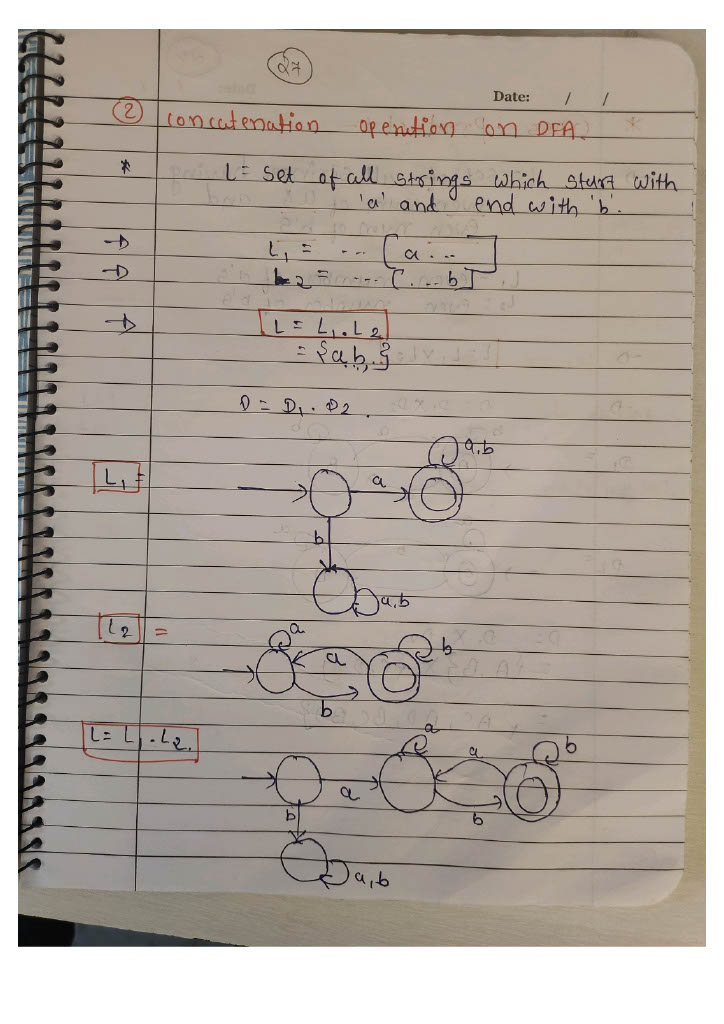 27
Date: / /
② Concatenation operation on DFA.
* L = Set of all strings which start with
'a' and end with 'b'.
→ L₁ = ... [a...]
→ L₂ = ... [....b]
→ L = L₁.L₂
= {ab..}
D = D₁ . D₂.
L₁ =
a
a,b
b
a,b
L₂ =
a
a
b
b
L = L₁.L₂.
a
a
a
b
b
b
a,b